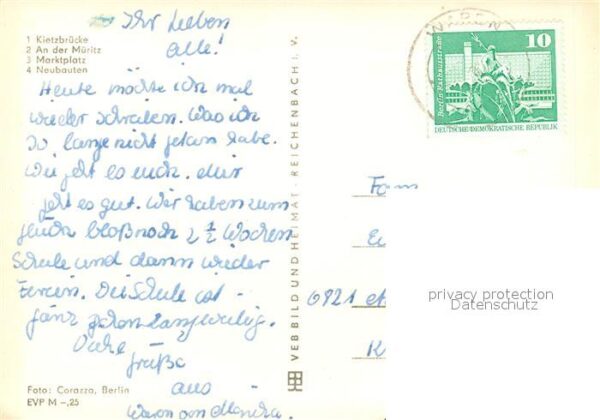 Ihr Lieben
alle!
1 Kietzbrücke
2 An der Müritz
3 Marktplatz
4 Neubauten
Heute möchte ich mal
wieder schreiben. Was ich
so lange nicht getan habe.
Wie geht es euch. Mir
geht es gut. Wir haben zum
glück bloß noch 2 1/2 Wochen
Schule und dann wieder
Ferien. Die Schule ist
ganz schön langweilig.
Viele
Grüße
aus
Waren von
Foto: Corazza, Berlin
EVP M –,25
VEB BILD UND HEIMAT · REICHENBACH I. V.
WAREN
10
Berlin Rathausstraße
DEUTSCHE DEMOKRATISCHE REPUBLIK
Fam
6821
K
privacy protection
Datenschutz